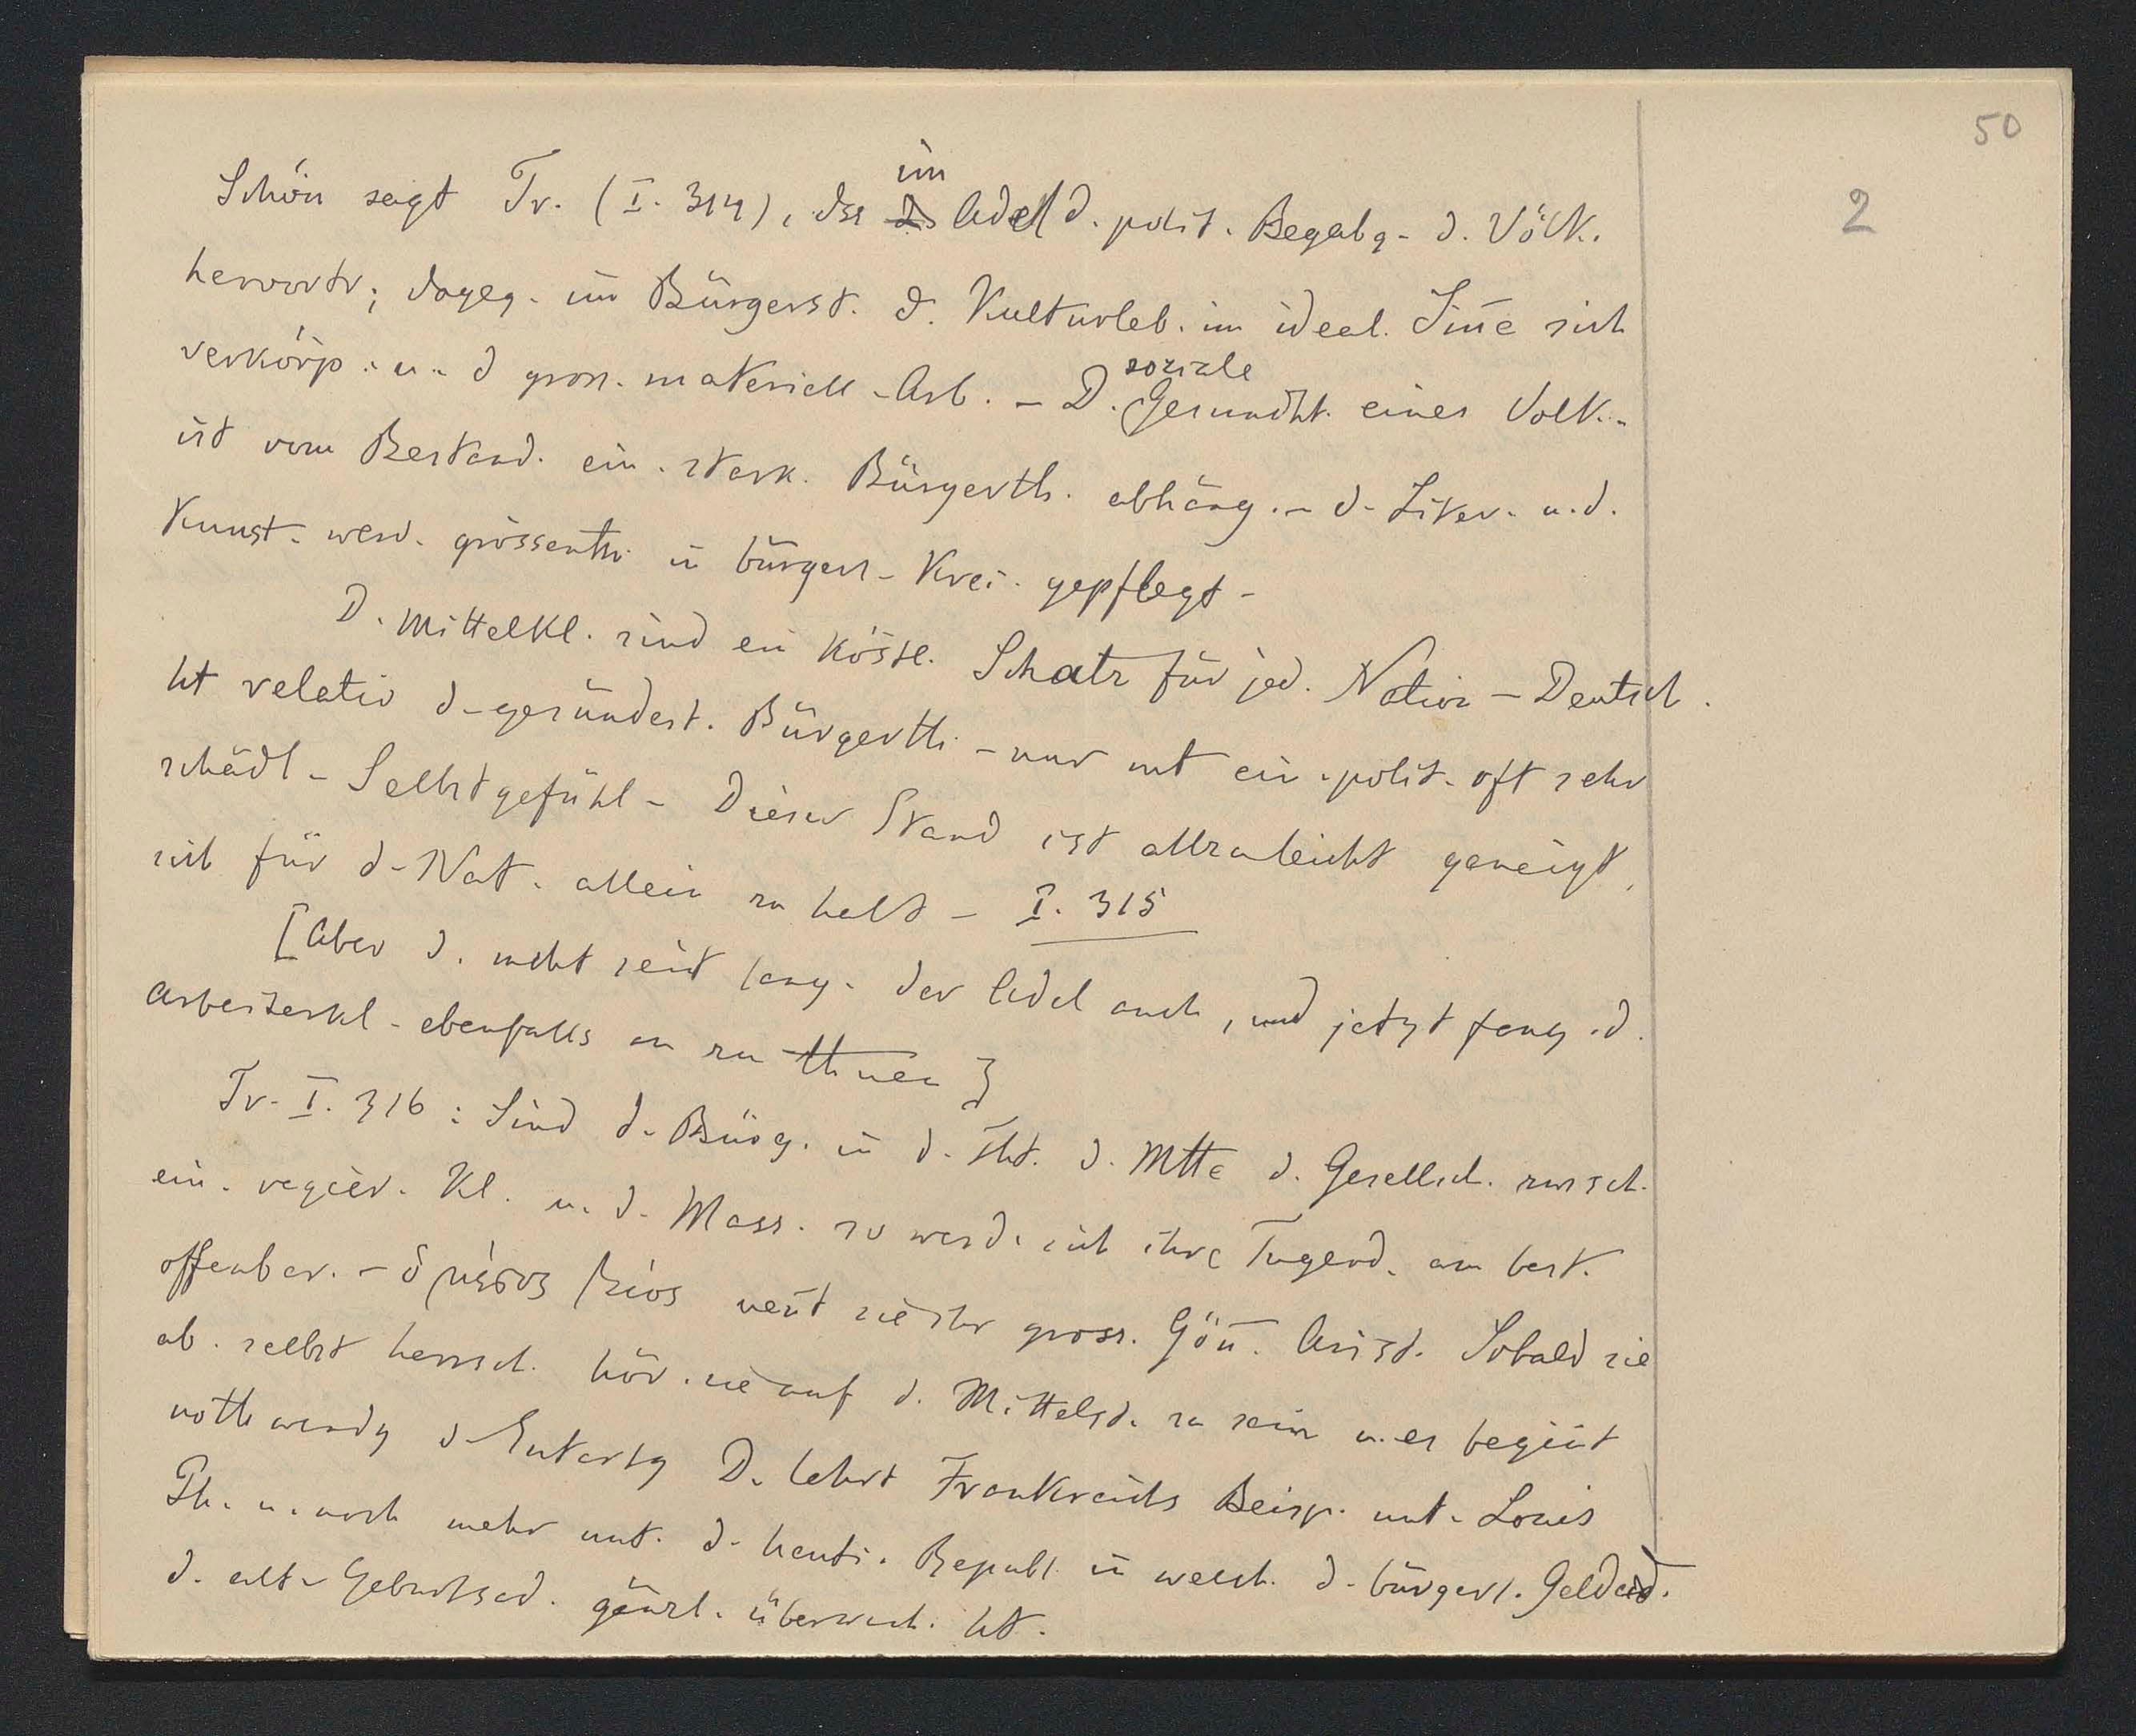 50
2
im
Schön sagt Tr. (I. 314), dss ds Adel d. polit. Begabg. d. Völk.
hervortr; dageg. im Bürgerst. d. Kulturleb. im ideal. Siñe sich
verkörp. u. d gross. materiell. Arb. – D. soziale Gesundht. eines Volk.
ist vom Bestand. ein. stark. Bürgerth. abhäng. – d. Liter. u. d.
Kunst. werd. grössenth. in bürgerl. Krei. gepflegt –
D. Mittelkl. sind ein köstl. Schatz für jed. Nation – Deutsch.
ht relativ d. gesündest. Bürgerth. – nur mt ein. polit. oft sehr
schädl. Selbstgefühl – Dieser Stand ist allzuleicht geneigt,
sich für d. Nat. allein zu halt – I. 315
[Aber d. macht seit lang. der Adel auch, und jetzt fang. d.
Arbeiterkl. ebenfalls an zu thuen]
Tr. I. 316: Sind d. Bürg. in d. Tht. d. Mtte d. Gesellsch. zwisch.
ein. regier. Kl. u. d. Mass. so werd. sich ihre Tugend. am best.
offenbar. – ὁ μέσος βίος neñt sie ihr gross. Göñ. Arist. Sobald sie
ab. selbst herrsch. hör. sie auf d. Mittelst. zu sein u. es begiñt
nothwendg d. Entartg D. lehrt Frankreichs Beisp. unt. Louis
Ph. u. noch mehr unt. d. heuti. Republ. in welch. d. bürgerl. Geldad.
d. alt. Geburtsad. gänzl. überwach. ht.